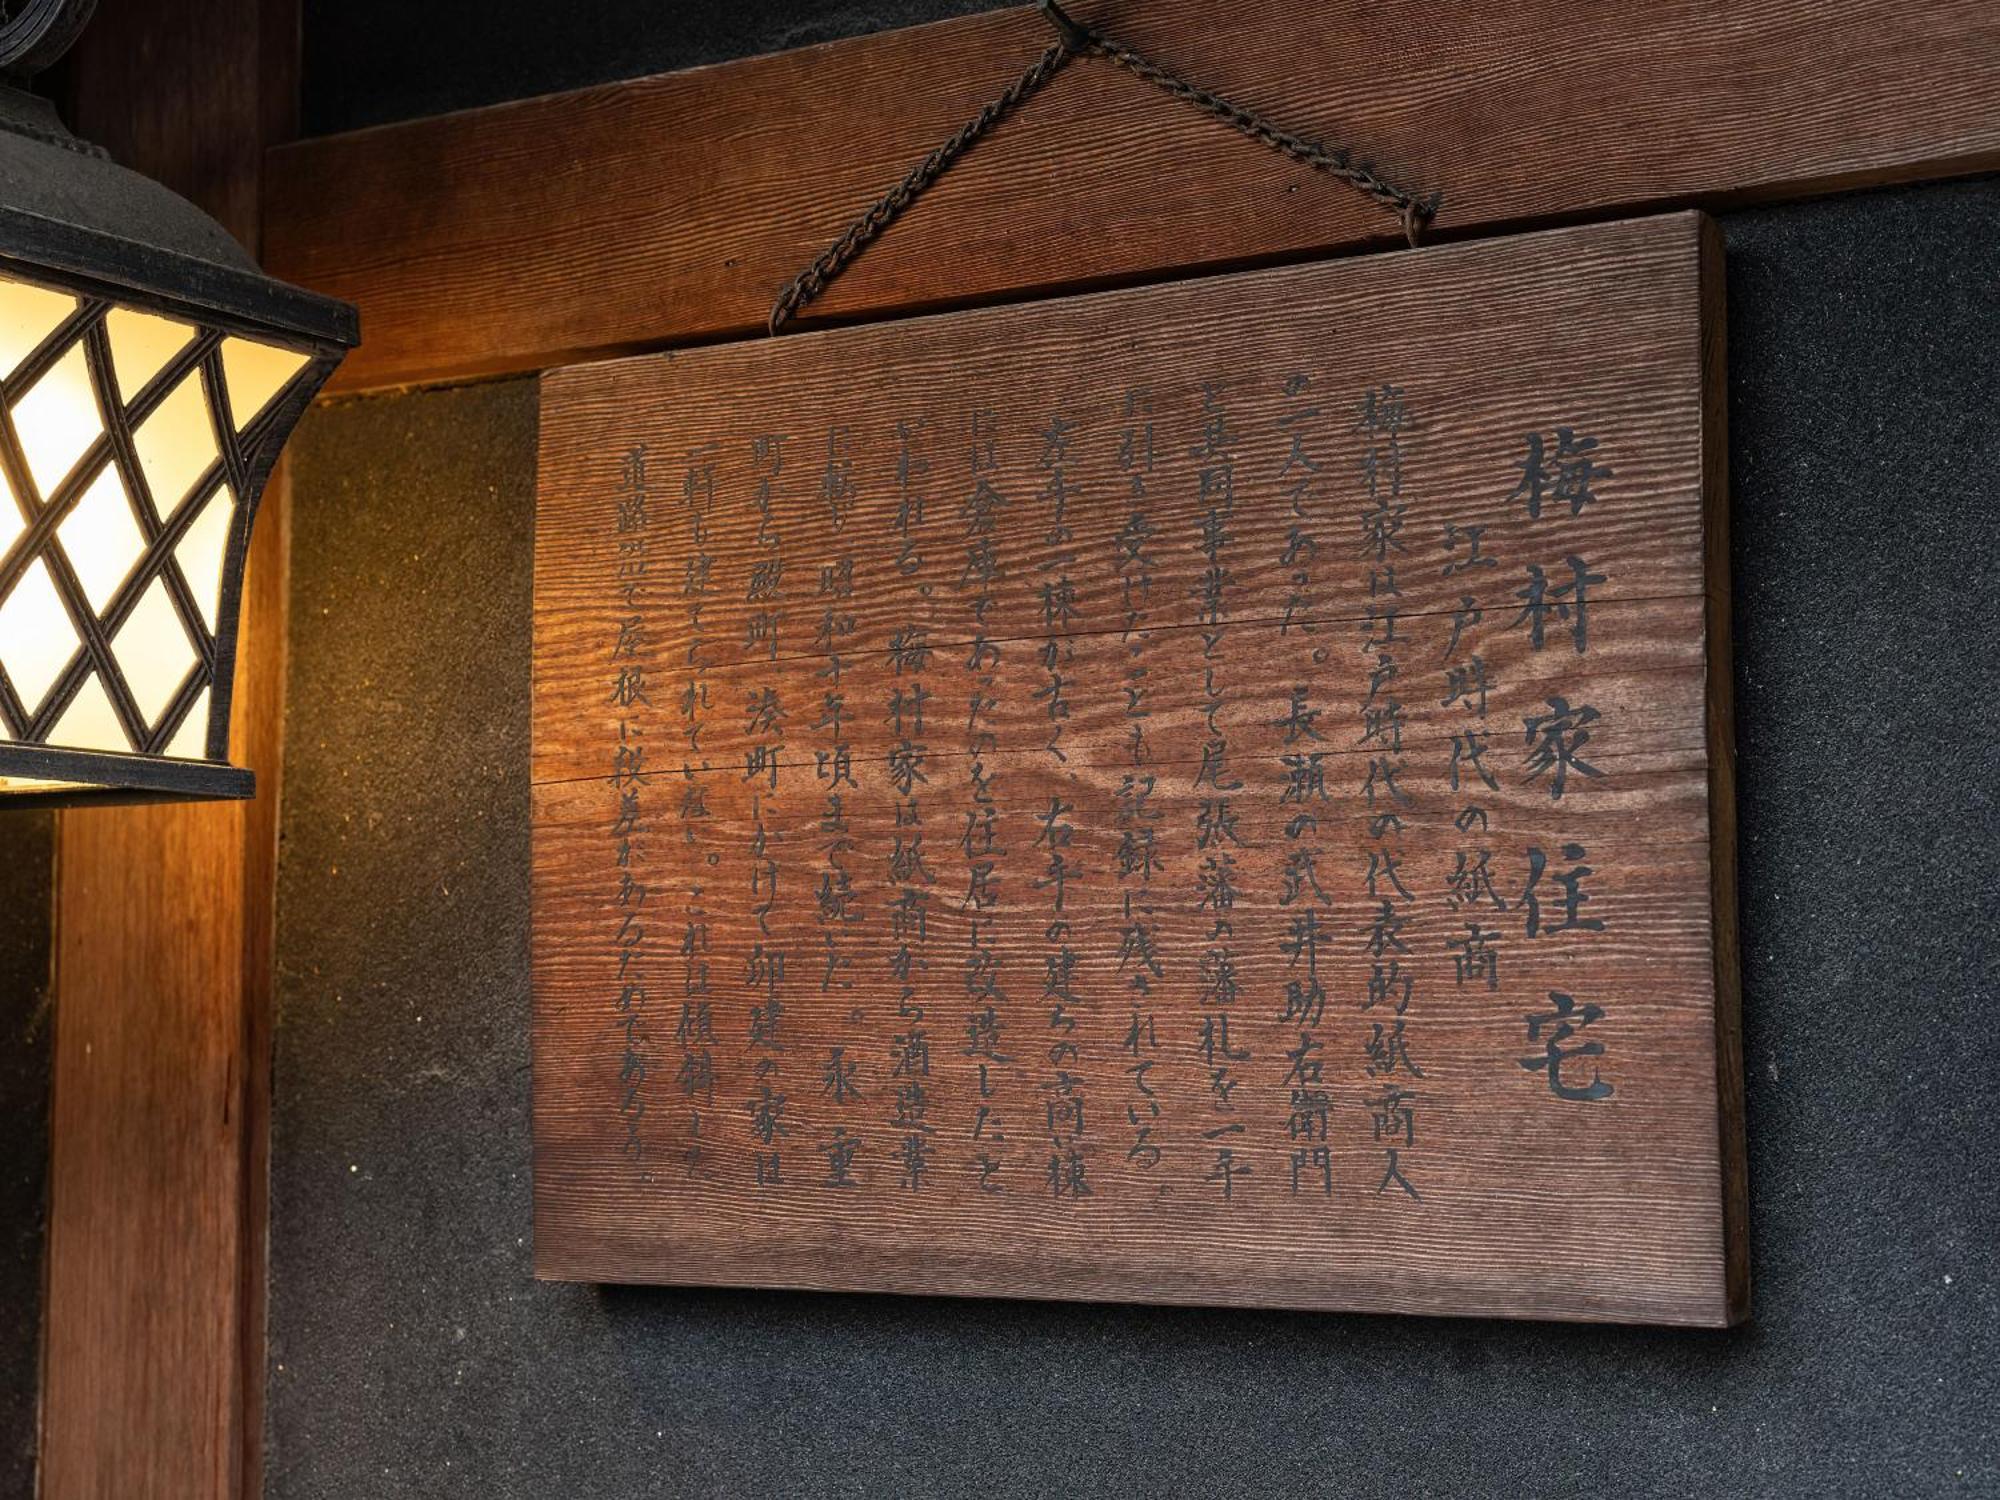 梅村家住宅
江戸時代の紙商
梅村家は江戸時代の代表的紙商人
の一人であった。長瀬の武井助右衛門
と共同事業として尾張藩の藩札を一手
に引き受けたことも記録に残されている。
左手の一棟が古く、右手の建ちの高い棟
には倉庫であったのを住居に改造したと
いわれる。梅村家は紙商から酒造業
に転じ昭和十年頃まで続いた。永重
町から殿町、湊町にかけて卯建の家は
一軒も建てられていない。これは傾斜した
道路沿いで屋根に段差があるためであろう。